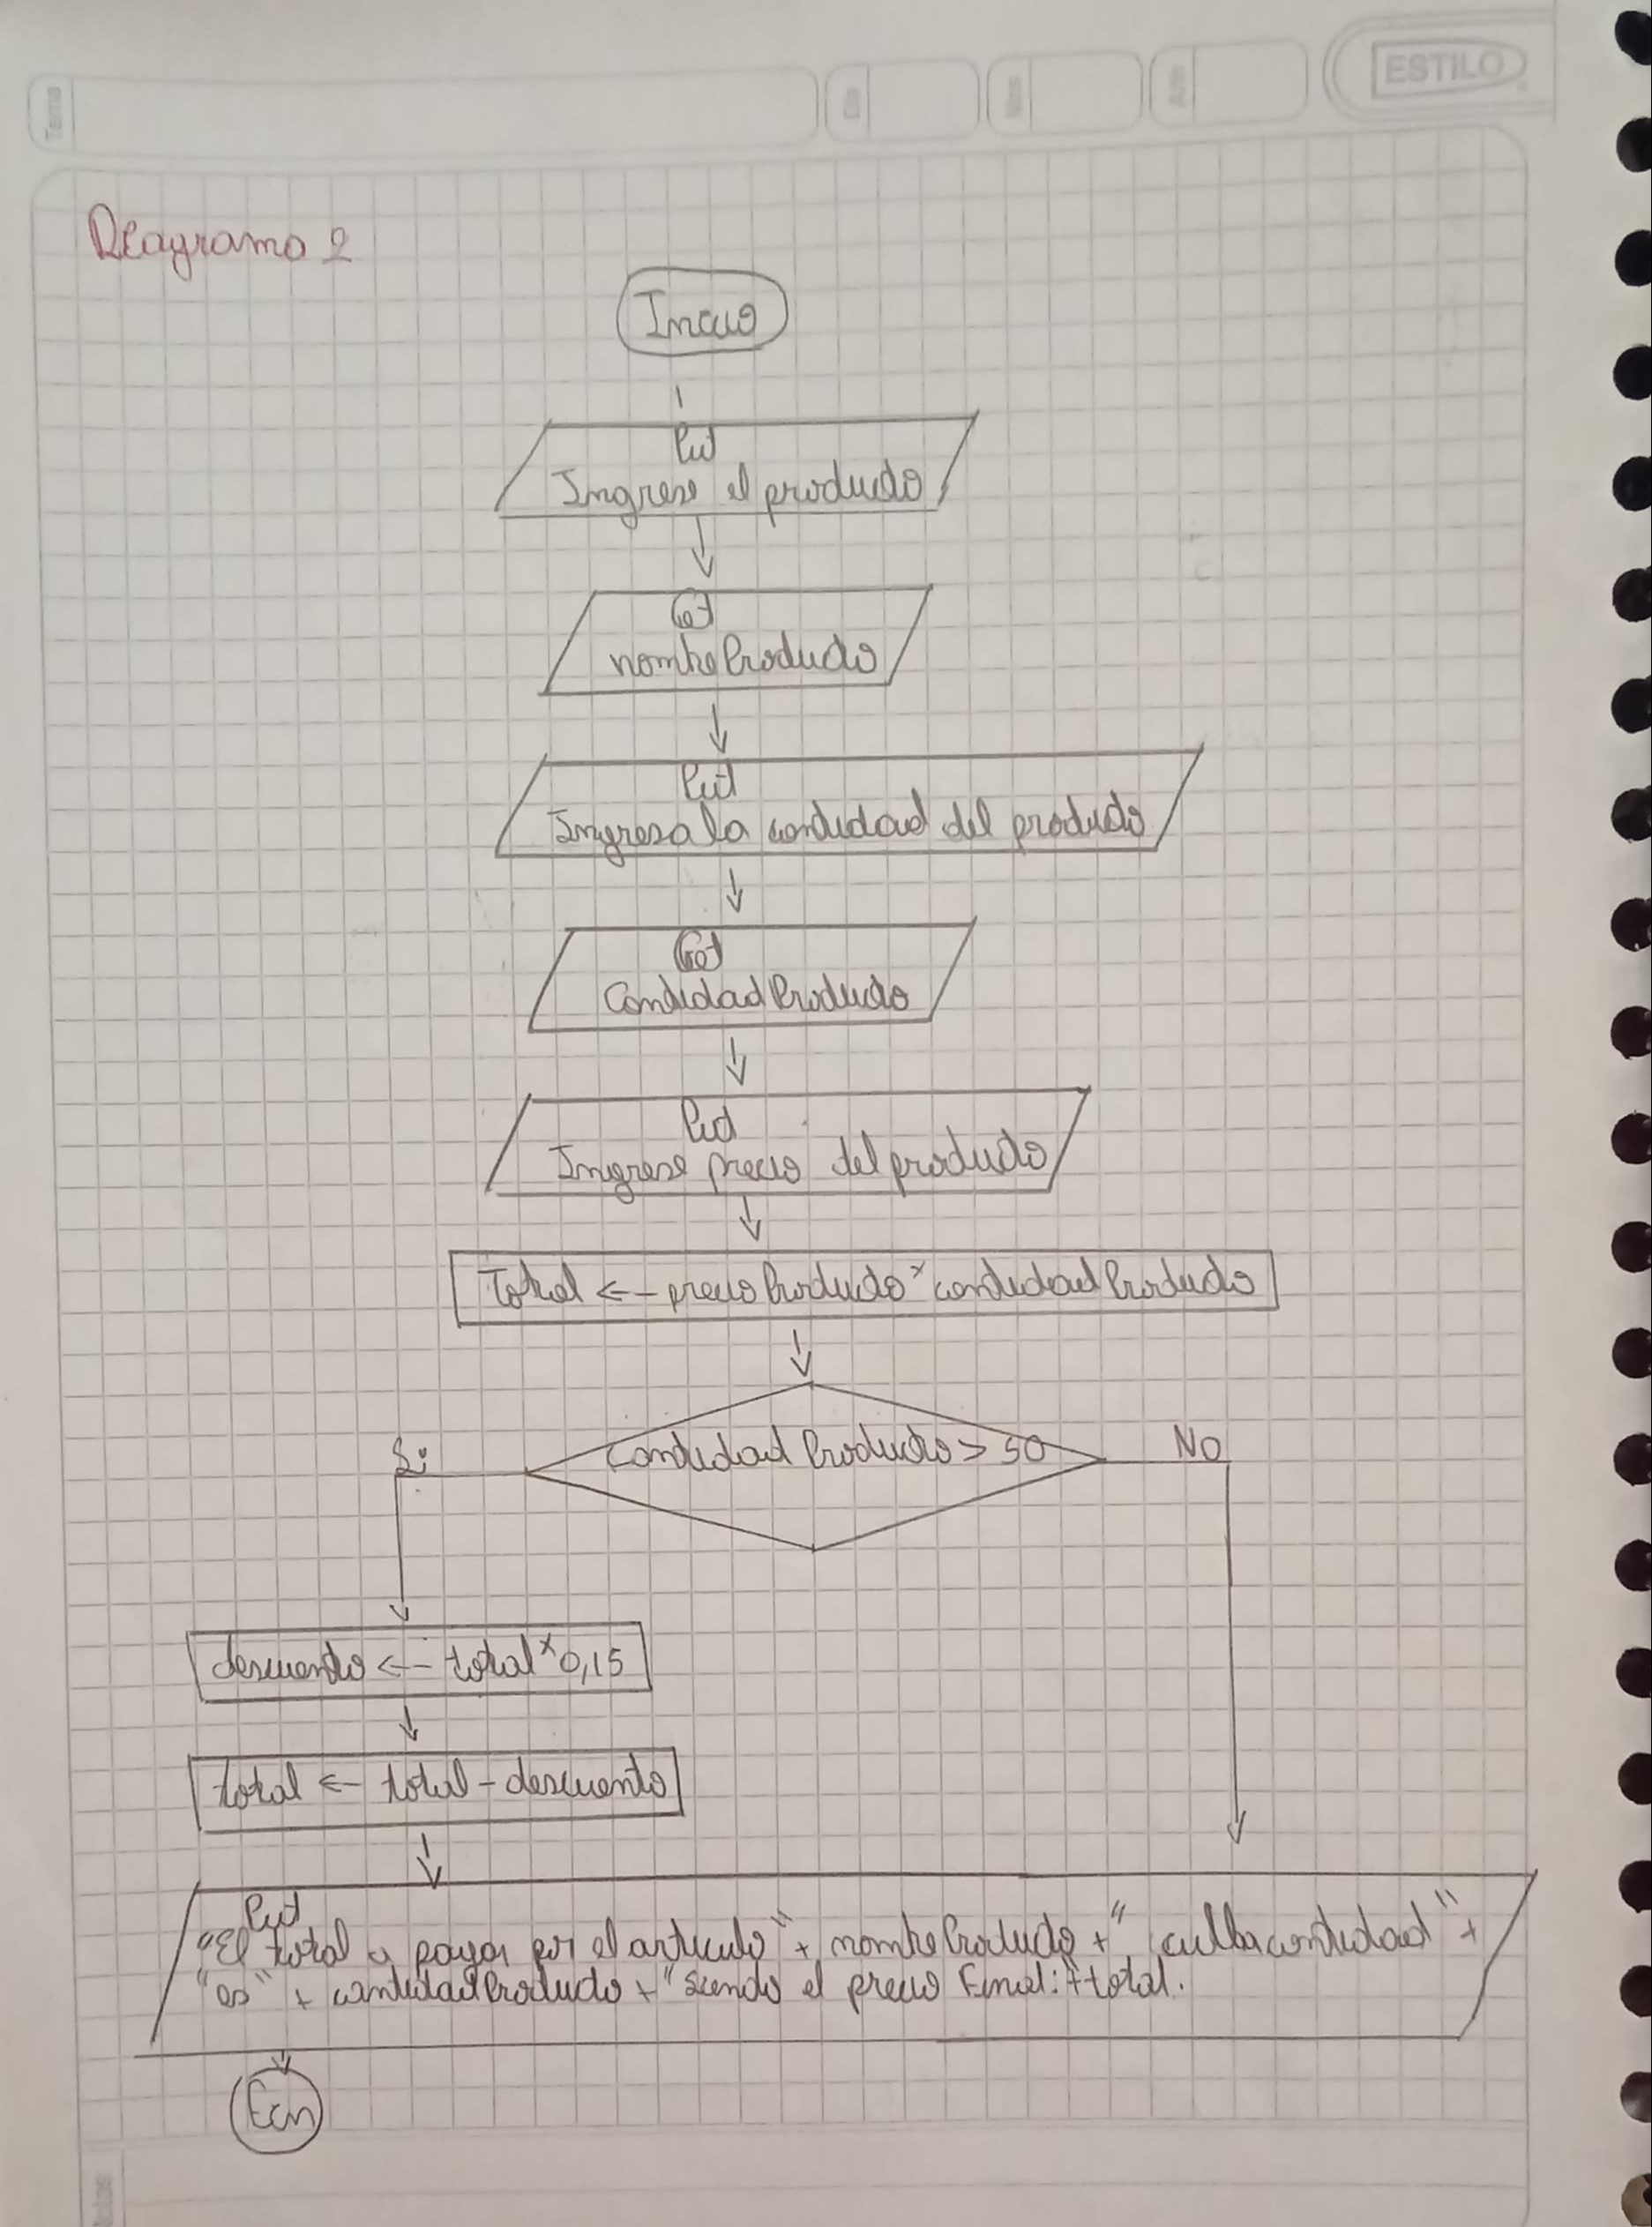 Tema
Dia
Mes
Año
ESTILO
Diagrama 2
Inicio
Put
Ingrese el producto
Get
nombreProducto
Put
Ingresa la cantidad del producto
Get
CantidadProducto
Put
Ingrese precio del producto
Total <-- precioProducto * cantidadProducto
Si
CantidadProducto > 50
No
descuento <-- total * 0,15
total <- total - descuento
Put
"El total a pagar por el articulo" + nombreProducto + " cantidad" +
"es" + cantidadProducto + "Siendo el precio Final: + total.
Fin
Notas